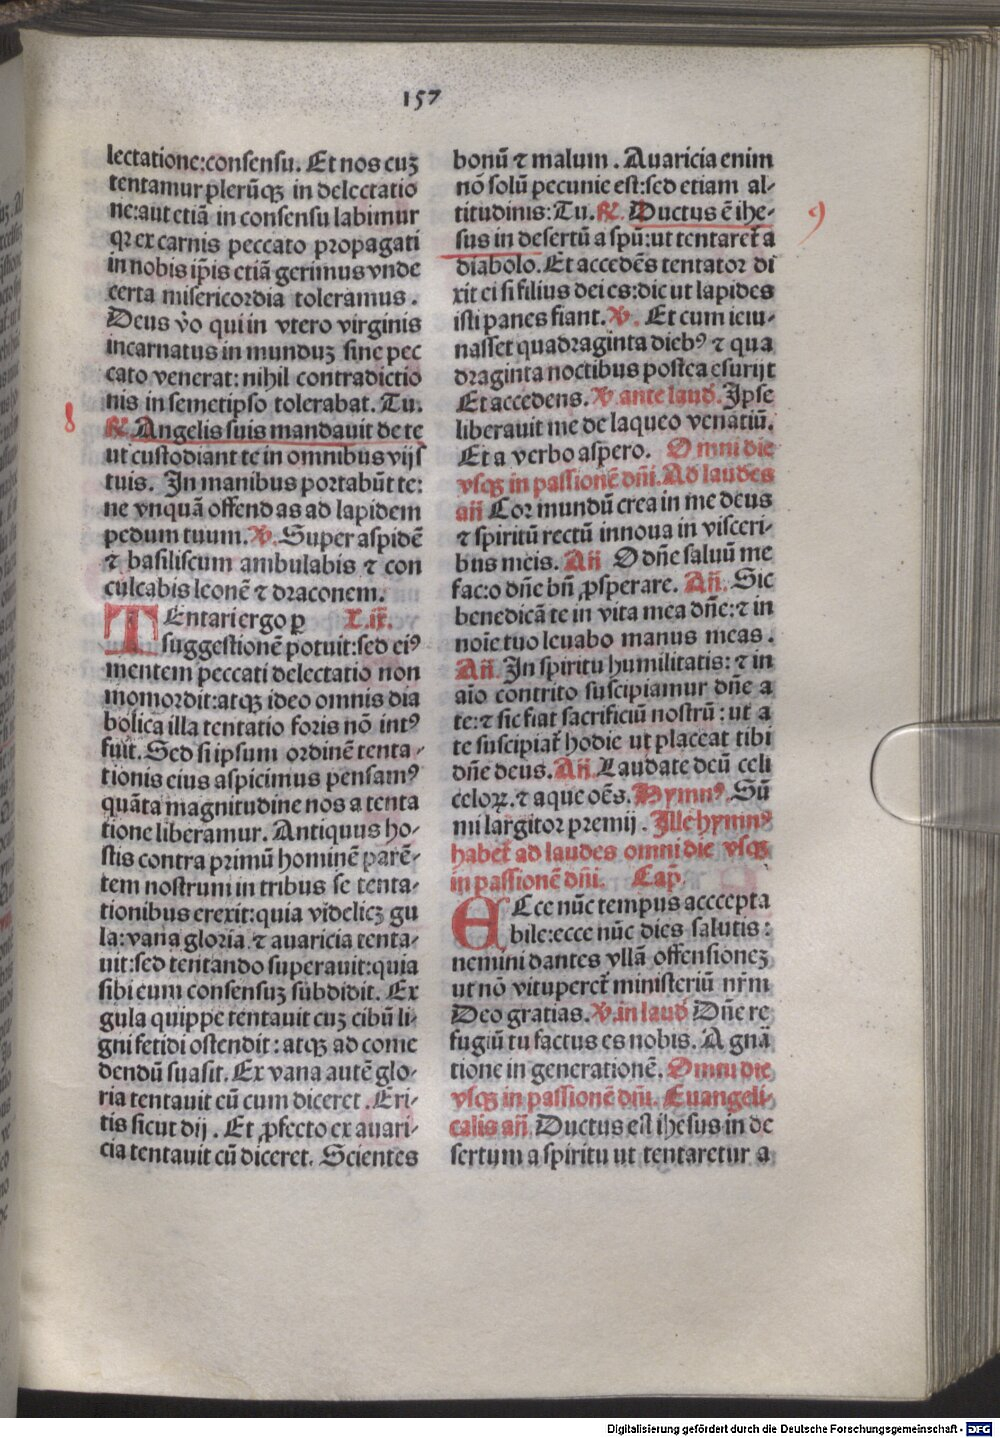 157
lectatione:consensu. Et nos cuꝫ
tentamur plerūqꝫ in delectatio
ne:aut etiā in consensu labimur
qꝛ ex carnis peccato propagati
in nobis ip̄is etiā gerimus vnde
certa misericordia toleramus.
Deus v̄o qui in vtero virginis
incarnatus in munduꝫ sine pec
cato venerat: nihil contradictio
nis in semetipso tolerabat. Tu.
8
℟. Angelis suis mandauit de te
ut custodiant te in omnibus vijs
tuis. In manibus portabūt te:
ne vnquā offendas ad lapidem
pedum tuum. ℣. Super aspidē
⁊ basiliscum ambulabis ⁊ con
culcabis leonē ⁊ draconem.
TEntari ergo ꝑ L.ix̄.
suggestionē potuit:sed eiꝰ
mentem peccati delectatio non
momordit:atqꝫ ideo omnis dia
bolica illa tentatio foris nō intꝰ
fuit. Sed si ipsum ordinē tenta-
tionis eius aspicimus pensamꝰ
quāta magnitudine nos a tenta
tione liberamur. Antiquus ho-
stis contra primū hominē parē-
tem nostrum in tribus se tenta-
tionibus erexit:quia videlicꝫ gu
la:vana gloria ⁊ auaricia tenta-
uit:sed tentando superauit:quia
sibi eum consensuꝫ subdidit. Ex
gula quippe tentauit cuꝫ cibū li-
gni fetidi ostendit: atqꝫ ad come
dendū suasit. Ex vana autē glo-
ria tentauit cū cum diceret. Eri-
tis sicut dij. Et ꝓfecto ex auari-
cia tentauit cū diceret. Scientes
bonū ⁊ malum. Auaricia enim
nō solū pecunie est:sed etiam al-
titudinis: Tu. ℟. Ductus ē ihe-
9
sus in desertū a spū:ut tentaret̄ a
diabolo. Et accedēs tentator di
xit ei si filius dei es:dic ut lapides
isti panes fiant. ℣. Et cum ieiu-
nasset quadraginta diebꝰ ⁊ qua
draginta noctibus postea esurijt
Et accedens. ℣. ante laud. Ipse
liberauit me de laqueo venātiū.
Et a verbo aspero. Omni die
vsqꝫ in passionē dn̄i. Ad laudes
añ Cor mundū crea in me deus
⁊ spiritū rectū innoua in visceri-
bus meis. Añ O dn̄e saluū me
fac:o dn̄e bn̄ ꝓsperare. Añ. Sic
benedicā te in vita mea dn̄e:⁊ in
noīe tuo leuabo manus meas.
Añ. In spiritu humilitatis: ⁊ in
aīo contrito suscipiamur dn̄e a
te:⁊ sic fiat sacrificiū nostrū: ut a
te suscipiat̄ hodie ut placeat tibi
dn̄e deus. Añ. Laudate deū celi
celoꝝ.⁊ aque oēs. Hymnꝰ. Sū
mi largitor premij. Ille hymnꝰ
habet̄ ad laudes omni die vsqꝫ
in passionē dn̄i. Cap.
ECce nūc tempus accepta
bile:ecce nūc dies salutis:
nemini dantes vllā offensioneꝫ
ut nō vituperet̄ ministeriū nr̄m
Deo gratias. ℣. in laud Dn̄e re
fugiū tu factus es nobis. A gnā
tione in generationē. Omni die
vsqꝫ in passionē dn̄i. Euangeli-
calis añ. Ductus est ihesus in de
sertum a spiritu ut tentaretur a
Digitalisierung gefördert durch die Deutsche Forschungsgemeinschaft - DFG